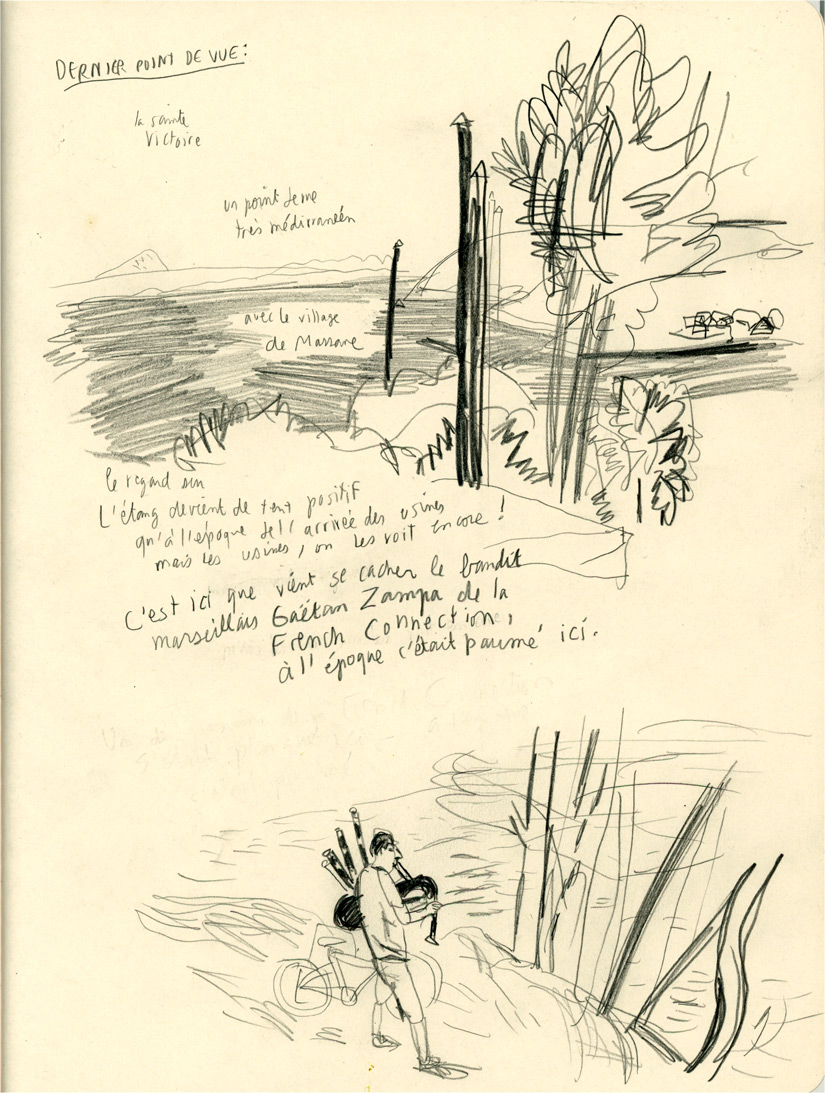 DERNIER POINT DE VUE:
la sainte
Victoire
un point de vue
très médirranéén
avec le village
de Marsane
le regard sur
L'étang devient de tent positif
qu'à l'époque de l'arrivée des usines
mais les usines, on les voit encore !
C'est ici que vient se cacher le bandit
marseillais Gaétan Zampa de la
French Connection,
à l'époque c'était paumé ici.